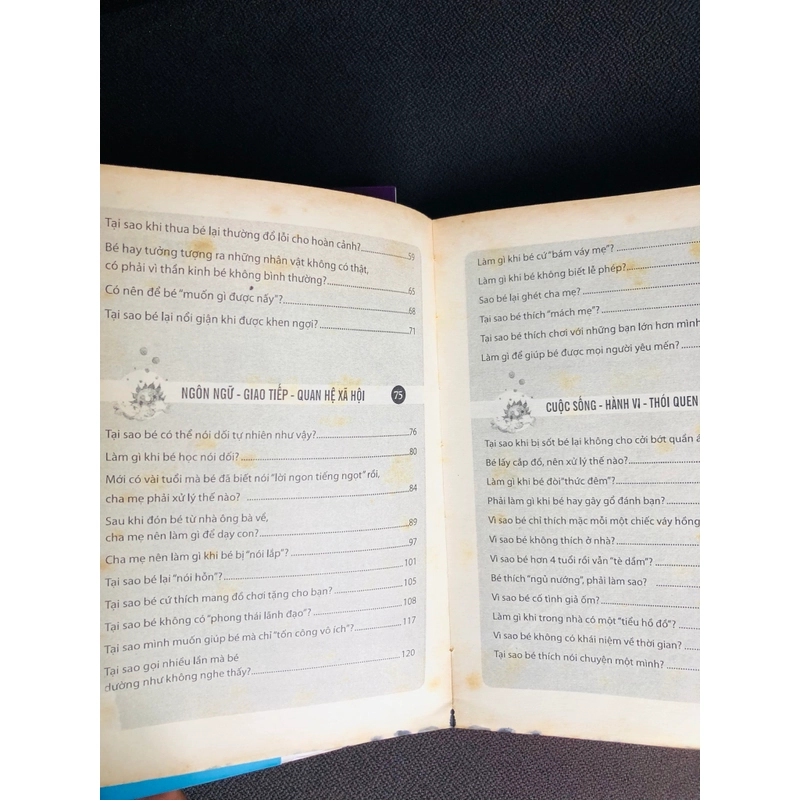 Tại sao khi thua bé lại thường đổ lỗi cho hoàn cảnh? 59
Bé hay tưởng tượng ra những nhân vật không có thật,
có phải vì thần kinh bé không bình thường? 65
Có nên để bé "muốn gì được nấy"? 68
Tại sao bé lại nổi giận khi được khen ngợi? 71
NGÔN NGỮ - GIAO TIẾP - QUAN HỆ XÃ HỘI 75
Tại sao bé có thể nói dối tự nhiên như vậy? 76
Làm gì khi bé học nói dối? 80
Mới có vài tuổi mà bé đã biết nói "lời ngon tiếng ngọt" rồi,
cha mẹ phải xử lý thế nào? 84
Sau khi đón bé từ nhà ông bà về,
cha mẹ nên làm gì để dạy con? 89
Cha mẹ nên làm gì khi bé bị "nói lắp"? 97
Tại sao bé lại "nói hỗn"? 101
Tại sao bé cứ thích mang đồ chơi tặng cho bạn? 105
Tại sao bé không có "phong thái lãnh đạo"? 108
Tại sao mình muốn giúp bé mà chỉ "tốn công vô ích"? 117
Tại sao gọi nhiều lần mà bé
dường như không nghe thấy? 120
Làm gì khi bé cứ "bám váy mẹ"?
Làm gì khi bé không biết lễ phép?
Sao bé lại ghét cha mẹ?
Tại sao bé thích "mách mẹ"?
Tại sao bé thích chơi với những bạn lớn hơn mình
Làm gì để giúp bé được mọi người yêu mến?
CUỘC SỐNG - HÀNH VI - THÓI QUEN
Tại sao khi bị sốt bé lại không cho cởi bớt quần
Bé lấy cắp đồ, nên xử lý thế nào?
Làm gì khi bé đòi "thức đêm"?
Phải làm gì khi bé hay gây gổ đánh bạn?
Vì sao bé chỉ thích mặc mỗi một chiếc váy hồng
Vì sao bé không thích ở nhà?
Vì sao bé hơn 4 tuổi rồi vẫn "tè dầm"?
Bé thích "ngủ nướng", phải làm sao?
Vì sao bé cố tình giả ốm?
Làm gì khi trong nhà có một "tiểu hồ đồ"?
Vì sao bé không có khái niệm về thời gian?
Tại sao bé thích nói chuyện một mình?